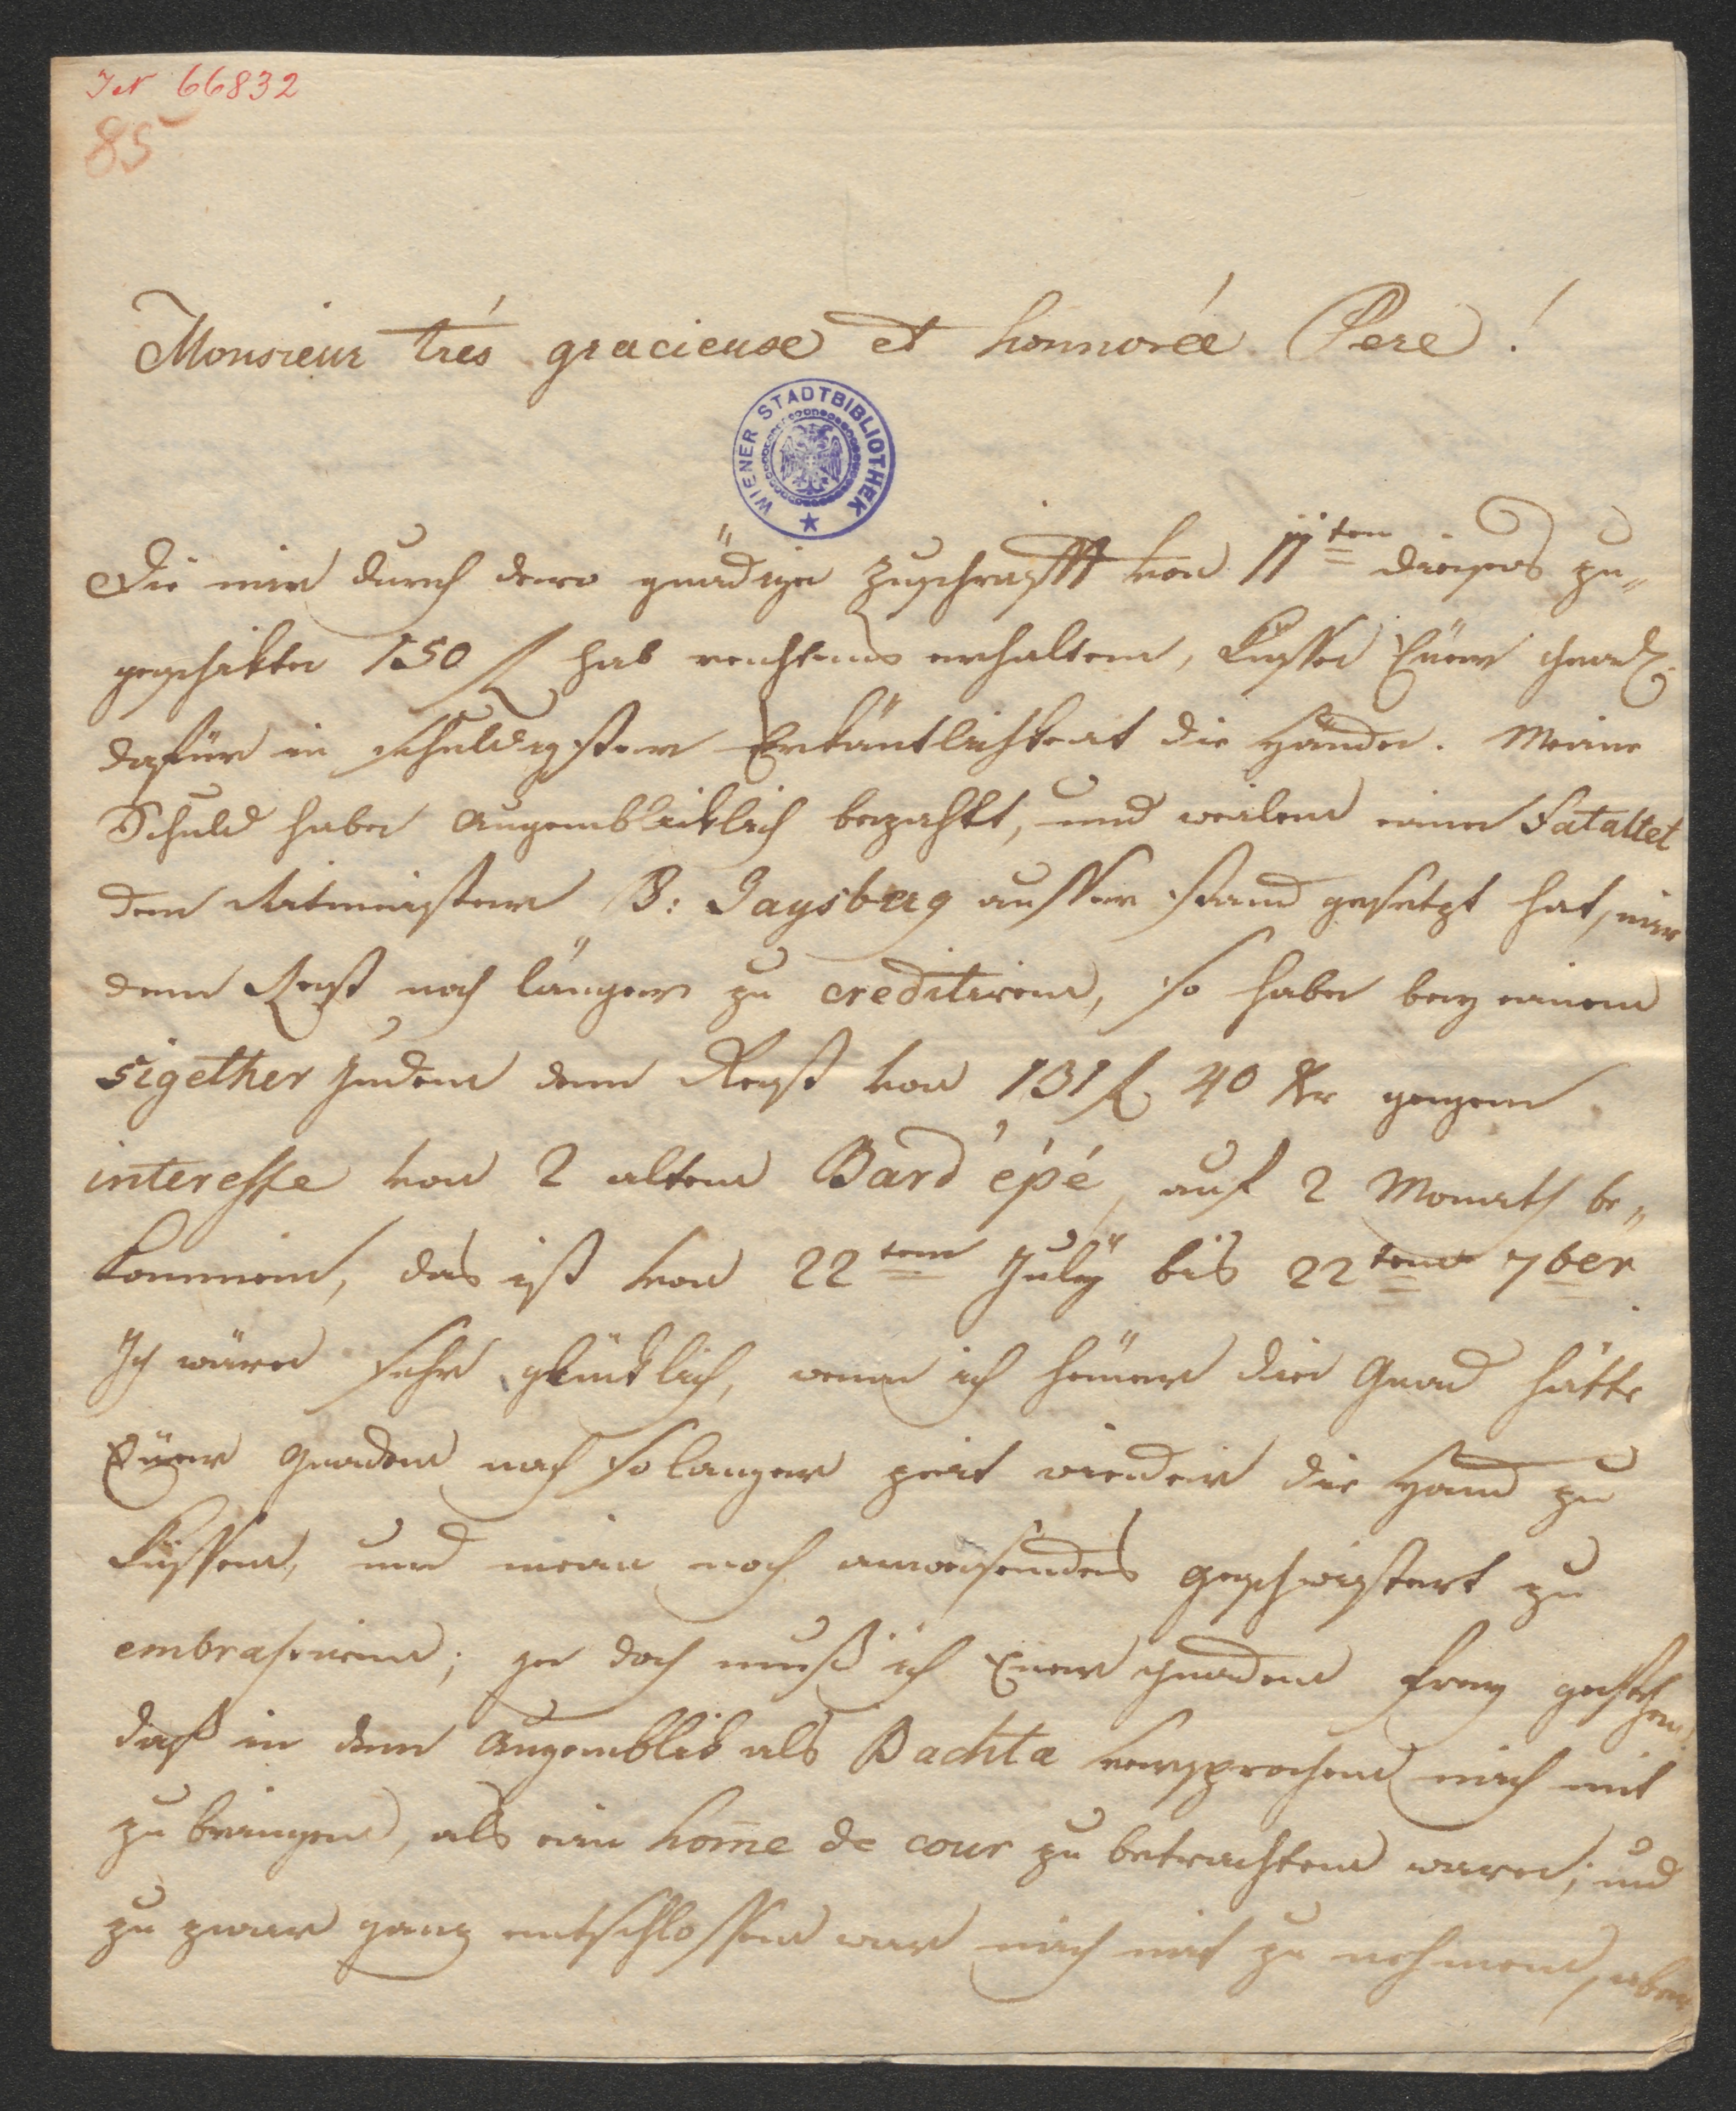 JN 66832
85
Monsieur trés gracieuse et honnorée Pere!
WIENER STADTBIBLIOTHEK
Die mir durch dero gnädige Zuschrifft von 11ten dieses zu„
geschikte 150 f hab richtens erhalten, küsse Euer Gnad.
dafür in schuldigster Erkäntlichkeit die Hände. Meine
Schuld habe augenbliklich bezahlt, und weilen eine Fataltet
den Ritmeister B: Jagsberg ausser stand gesetzt hat, mir
den Rest noch länger zu creditiren, so habe bey einem
sigether Juden den Rest von 131 f 40 Kr gegen
interesse von 2 alten Bard'épé, auf 2 Monath be„
kommen, das ist von 22ten July bis 22ten 7ber.
Ich wäre sehr glücklich, wenn ich heuer die Gnad hätte
Euer Gnaden nach so langer zeit wieder die Hand zu
küssen, und mein noch anwesendes geschwistert zu
embrasiren; je doch muß ich Euer Gnaden frey gestehen,
daß in dem Augenblik als Bachta versprochen mich mit
zu bringen, als ein hom̄e de cour zu betrachten ware; und
zu zwar ganz entschlossen war mich mit zu nehmen, aber